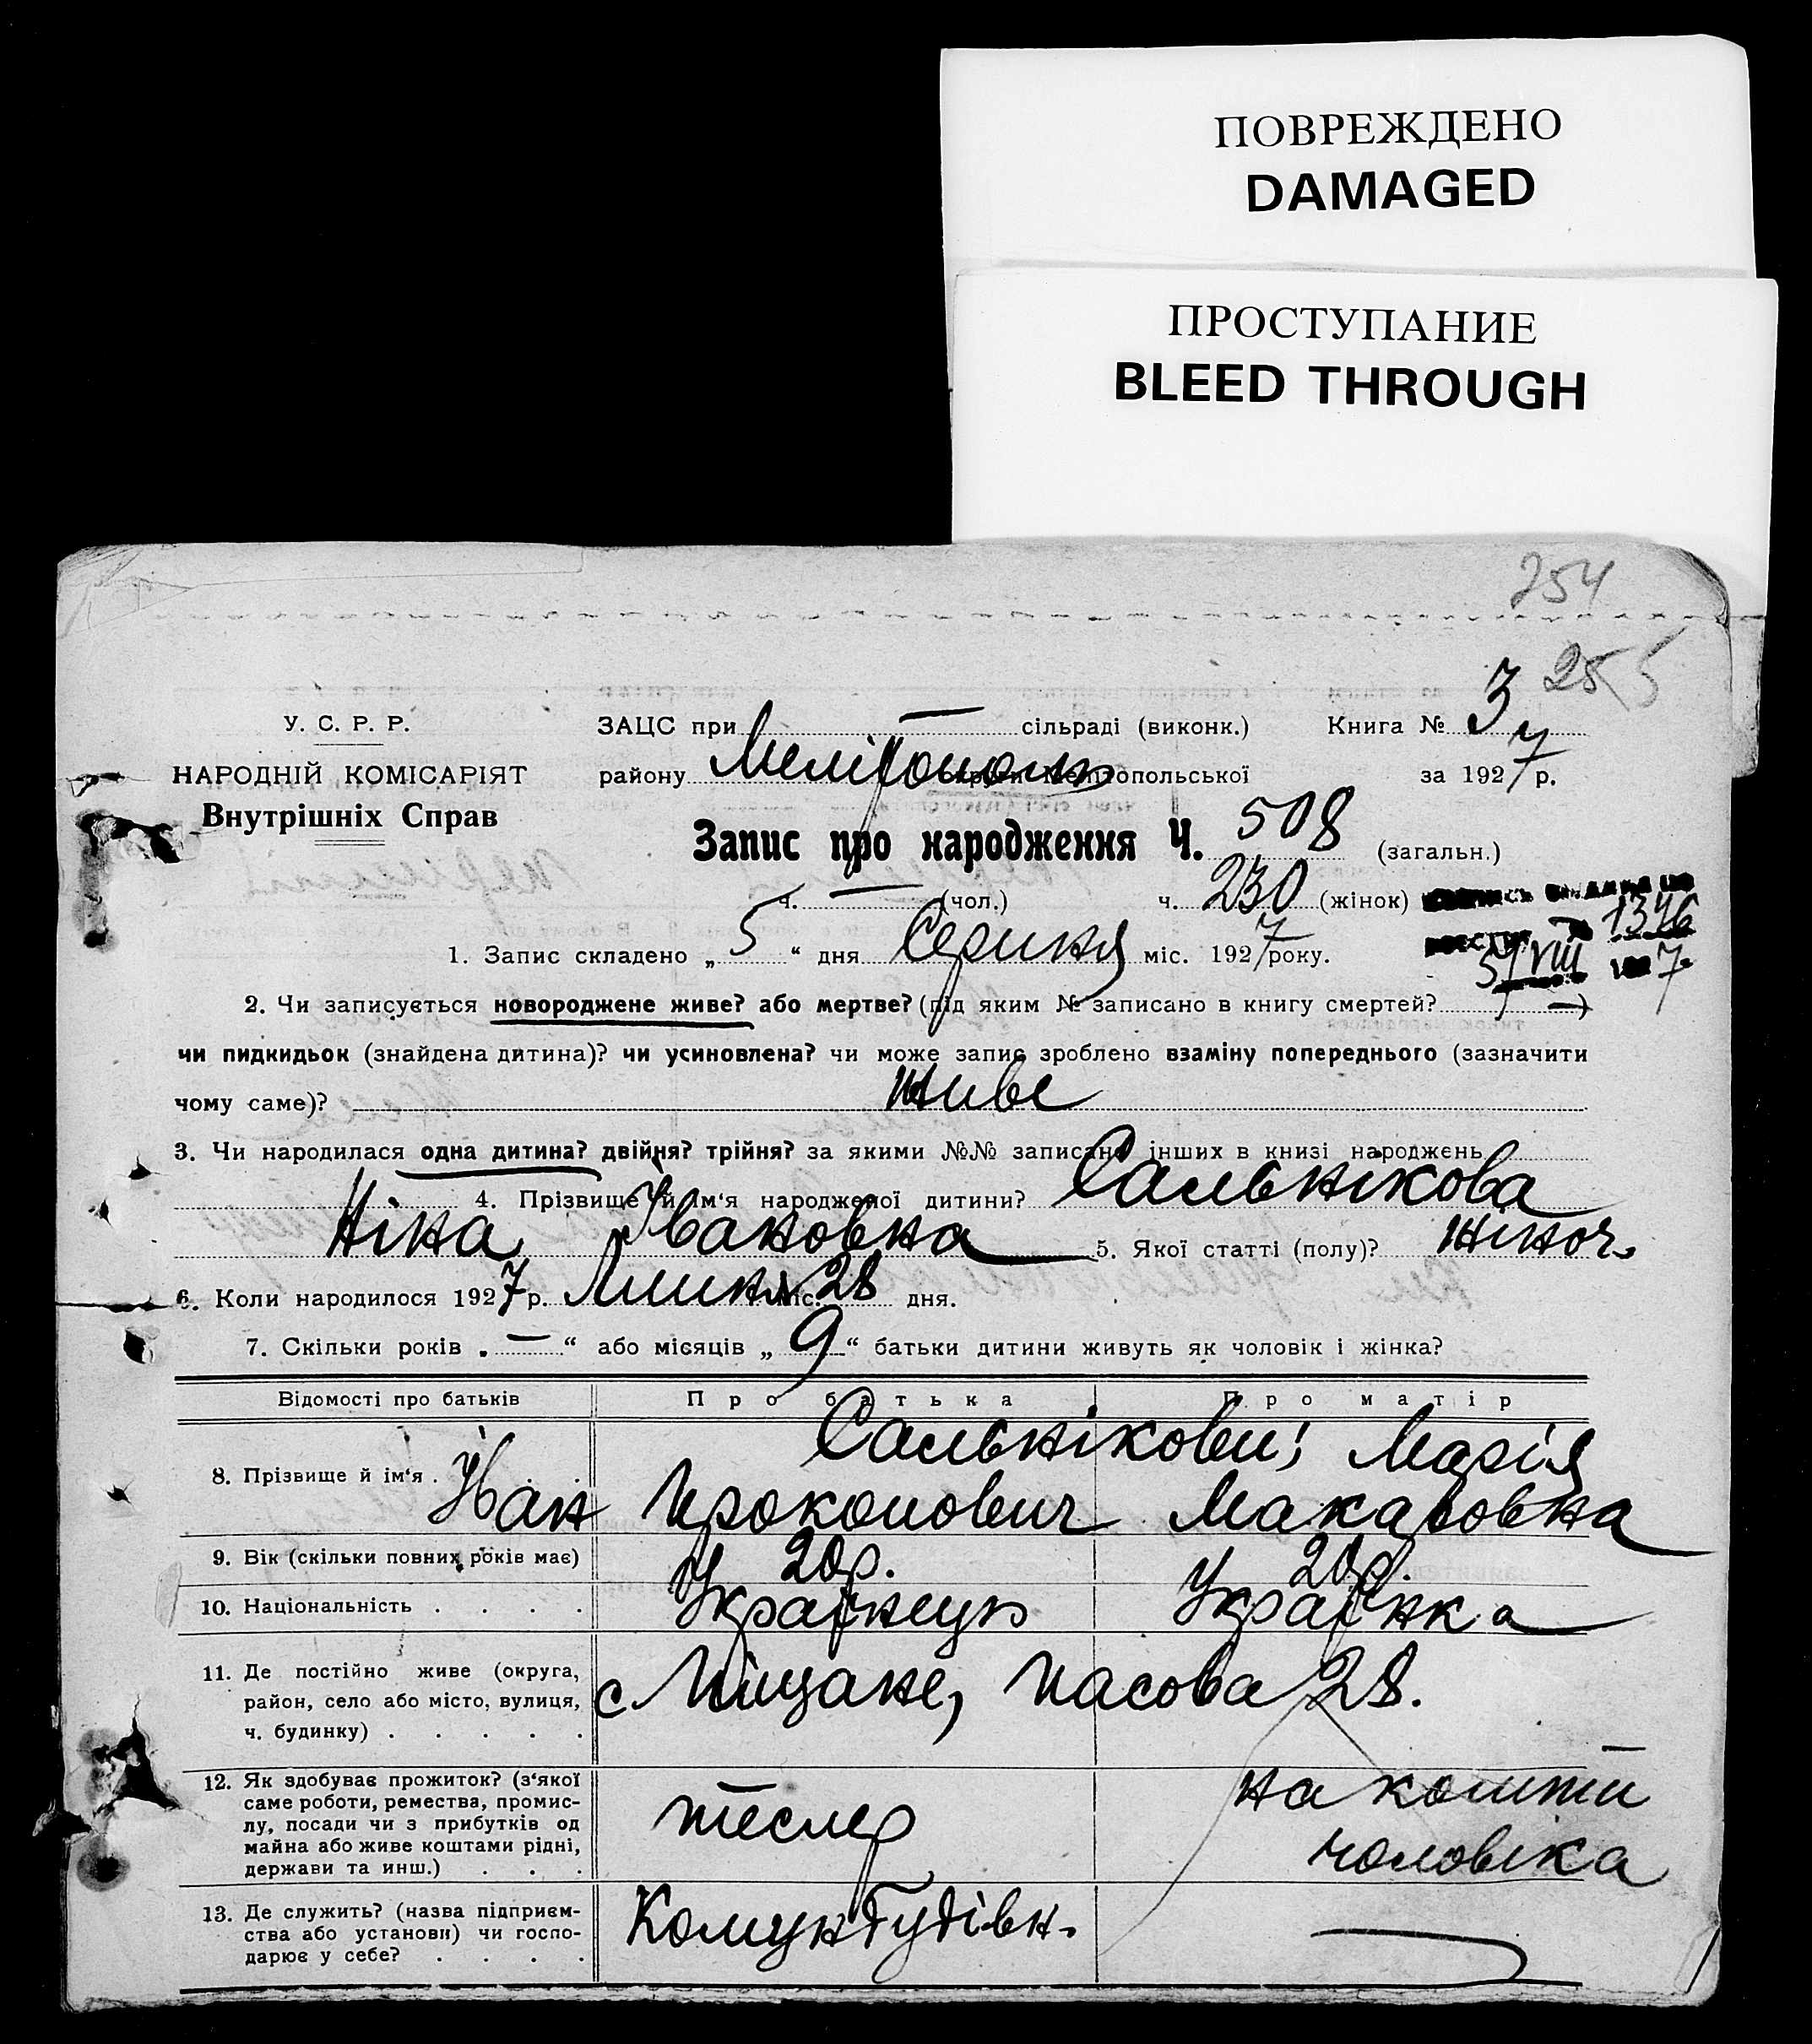 ПОВРЕЖДЕНО
DAMAGED
ПРОСТУПАНИЕ
BLEED THROUGH
254
255
У. С. Р. Р.
НАРОДНІЙ КОМІСАРІЯТ
Внутрішніх Справ
ЗАЦС при — сільраді (виконк.) Книга № 3
району Мелітополь округи Мелітопольської за 1927 р.
Запис про народження Ч. 508 (загальн.)
ч. — (чол.) ч. 230 (жінок)
1346
5/VIII 1927
1. Запис складено „ 5 “ дня Серпня міс. 1927 року.
2. Чи записується новороджене живе? або мертве? (під яким № записано в книгу смертей? — )
чи пидкидьок (знайдена дитина)? чи усиновлена? чи може запис зроблено взаміну попереднього (зазначити
чому саме)? живе
3. Чи народилася одна дитина? двійня? трійня? за якими №№ записано інших в книзі народжень
4. Прізвище й ім‘я народженої дитини? Сальнікова
Ніна Івановна 5. Якої статті (полу)? жіноч.
6. Коли народилося 1927 р. Липня міс. 28 дня.
7. Скільки років „ — “ або місяців „ 9 “ батьки дитини живуть як чоловік і жінка?
Відомості про батьків Про батька Про матір
8. Прізвище й ім‘я . Сальнікови; Марія
Іван Прокопович Макаровна
9. Вік (скільки повних років має) 20р. 20р.
10. Національність . . . . Українець Українка
11. Де постійно живе (округа,
район, село або місто, вулиця,
ч. будинку) . . . . .
с Міщане, Пасова 28.
12. Як здобуває прожиток? (з‘якої
саме роботи, ремества, промис-
лу, посади чи з прибутків од
майна або живе коштами рідні,
держави та инш.) . . .
тесляр
на кошти
чоловіка
13. Де служить? (назва підприєм-
ства або установи) чи госпо-
дарює у себе? . . . .
Комунбудівн. —